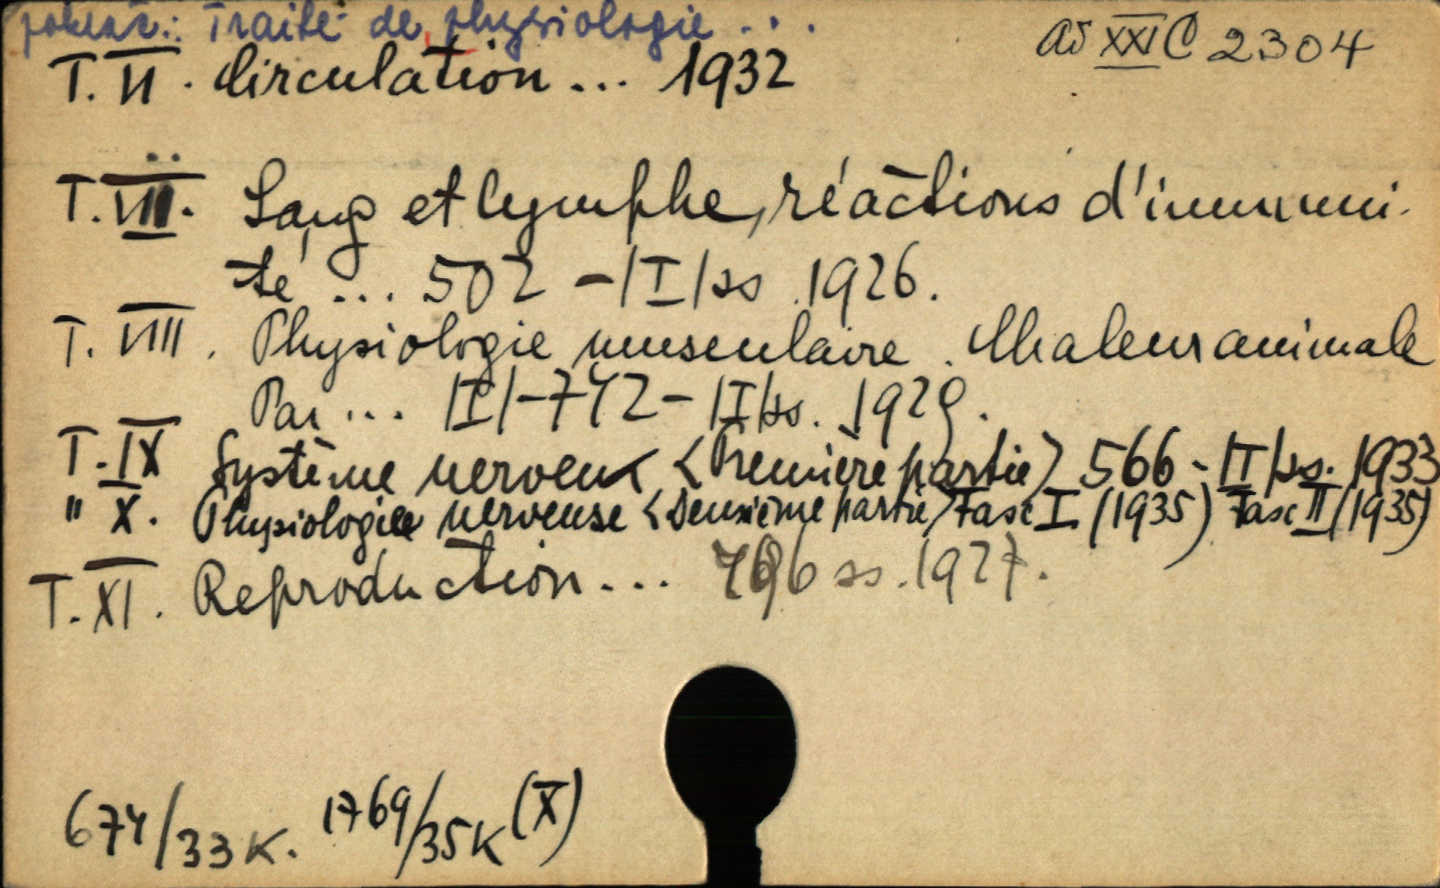 pokrač.: Traité de physiologie ...
Ad XXI C 2304
T. VI. Circulation ... 1932
T. VII. Sang et lymphe, réactions d'immuni-
té ... 502 - |I| ss 1926.
T. VIII. Physiologie musculaire. Chaleur animale
Par ... |I| - 742 - |I| ss. 1929.
T. IX Système nerveux <Première partie> 566 - |I| ss. 1933
" X. Physiologie nerveuse <Deuxième partie> Fasc I. (1935) Fasc II (1935)
T. XI. Reproduction ... 796 ss. 1927.
674/33 K. 1769/35 K (X)